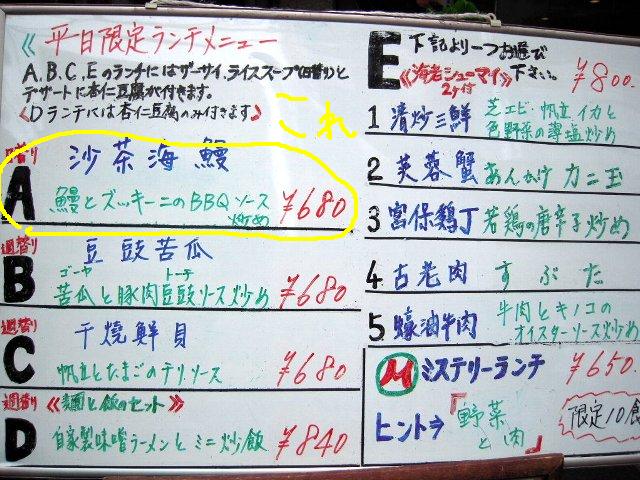 《平日限定ランチメニュー
A,B,C,Eのランチにはザーサイ、ライススープ(日替り)と
デザートに杏仁豆腐が付きます。
《Dランチには杏仁豆腐のみ付きます》
これ
日替り
A
沙茶海鰻
鰻とズッキーニのBBQソース
炒め
¥680
週替り
B
豆豉苦瓜
ゴーヤ トーチ
苦瓜と豚肉豆豉ソース炒め
¥680
週替り
C
干焼鮮貝
帆立とたまごのチリソース
¥680
週替り
《麺と飯のセット》
D
自家製味噌ラーメンとミニ炒飯
¥840
E
下記より一つお選び
下さい。
《海老シューマイ》
2ケ付
¥800.
1 清炒三鮮
芝エビ・帆立イカと
色野菜の薄塩炒め
2 芙蓉蟹 あんかけカニ玉
3 宮保鶏丁 若鶏の唐辛子炒め
4 古老肉 すぶた
5 蠔油牛肉
牛肉とキノコの
オイスターソース炒め
M ミステリーランチ ¥650.
ヒント⇒
『野菜
と肉』
限定10食